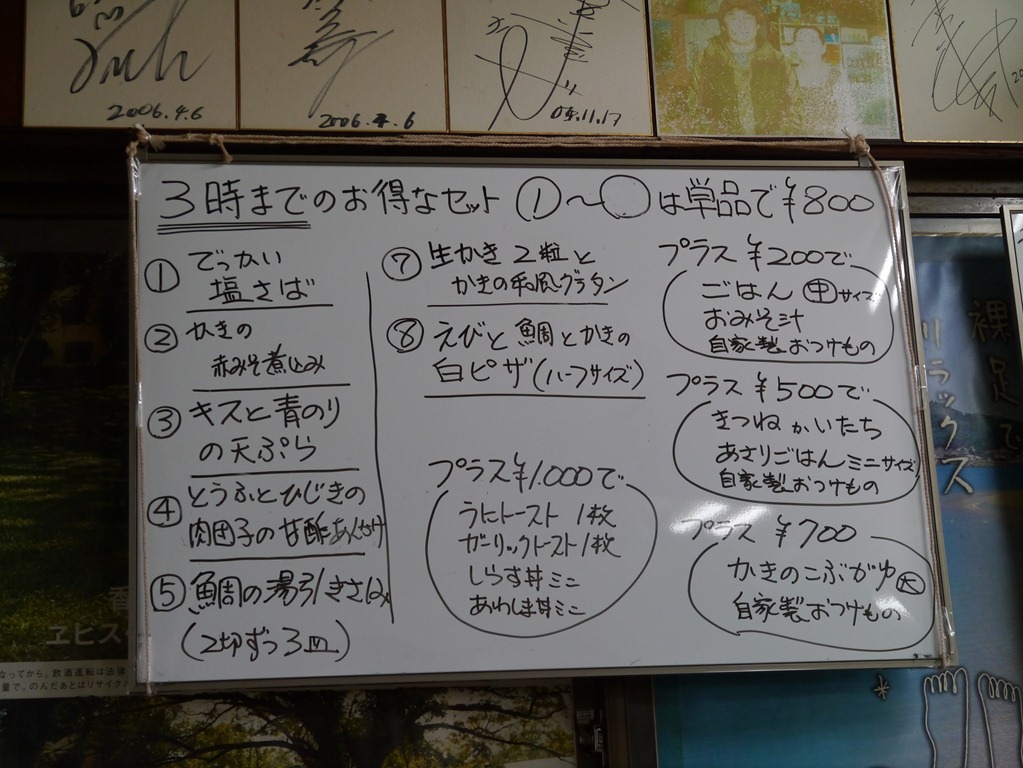 2006.4.6
2006.4.6
05.11.17
3時までのお得なセット ①～○は単品で¥800
① でっかい
塩さば
② かきの
赤みそ煮込み
③ キスと青のり
の天ぷら
④ とうふとひじきの
肉団子の甘酢あんかけ
⑤ 魚鯛の湯引きさしみ
(2切ずつ3皿)
⑦ 生かき2粒と
かきの和風グラタン
⑧ えびと鯛とかきの
白ピザ(ハーフサイズ)
プラス¥1.000で
うにトースト 1枚
ガーリックトースト1枚
しらす丼ミニ
あわしま丼ミニ
プラス ¥200で
ごはん 中サイズ
おみそ汁
自家製おつけもの
プラス ¥500で
きつねかいたち
あさりごはんミニサイズ
自家製おつけもの
プラス ¥700
かきのこぶがゆ 大
自家製おつけもの
裸足で
リラックス
香
ヱビス
なってから。飲酒運転は法律
量で。のんだあとはリサイクル